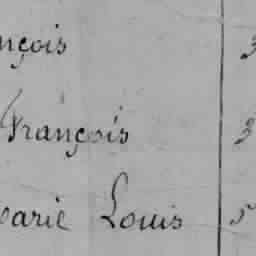 nçois 3
François 3
arie Louis 5